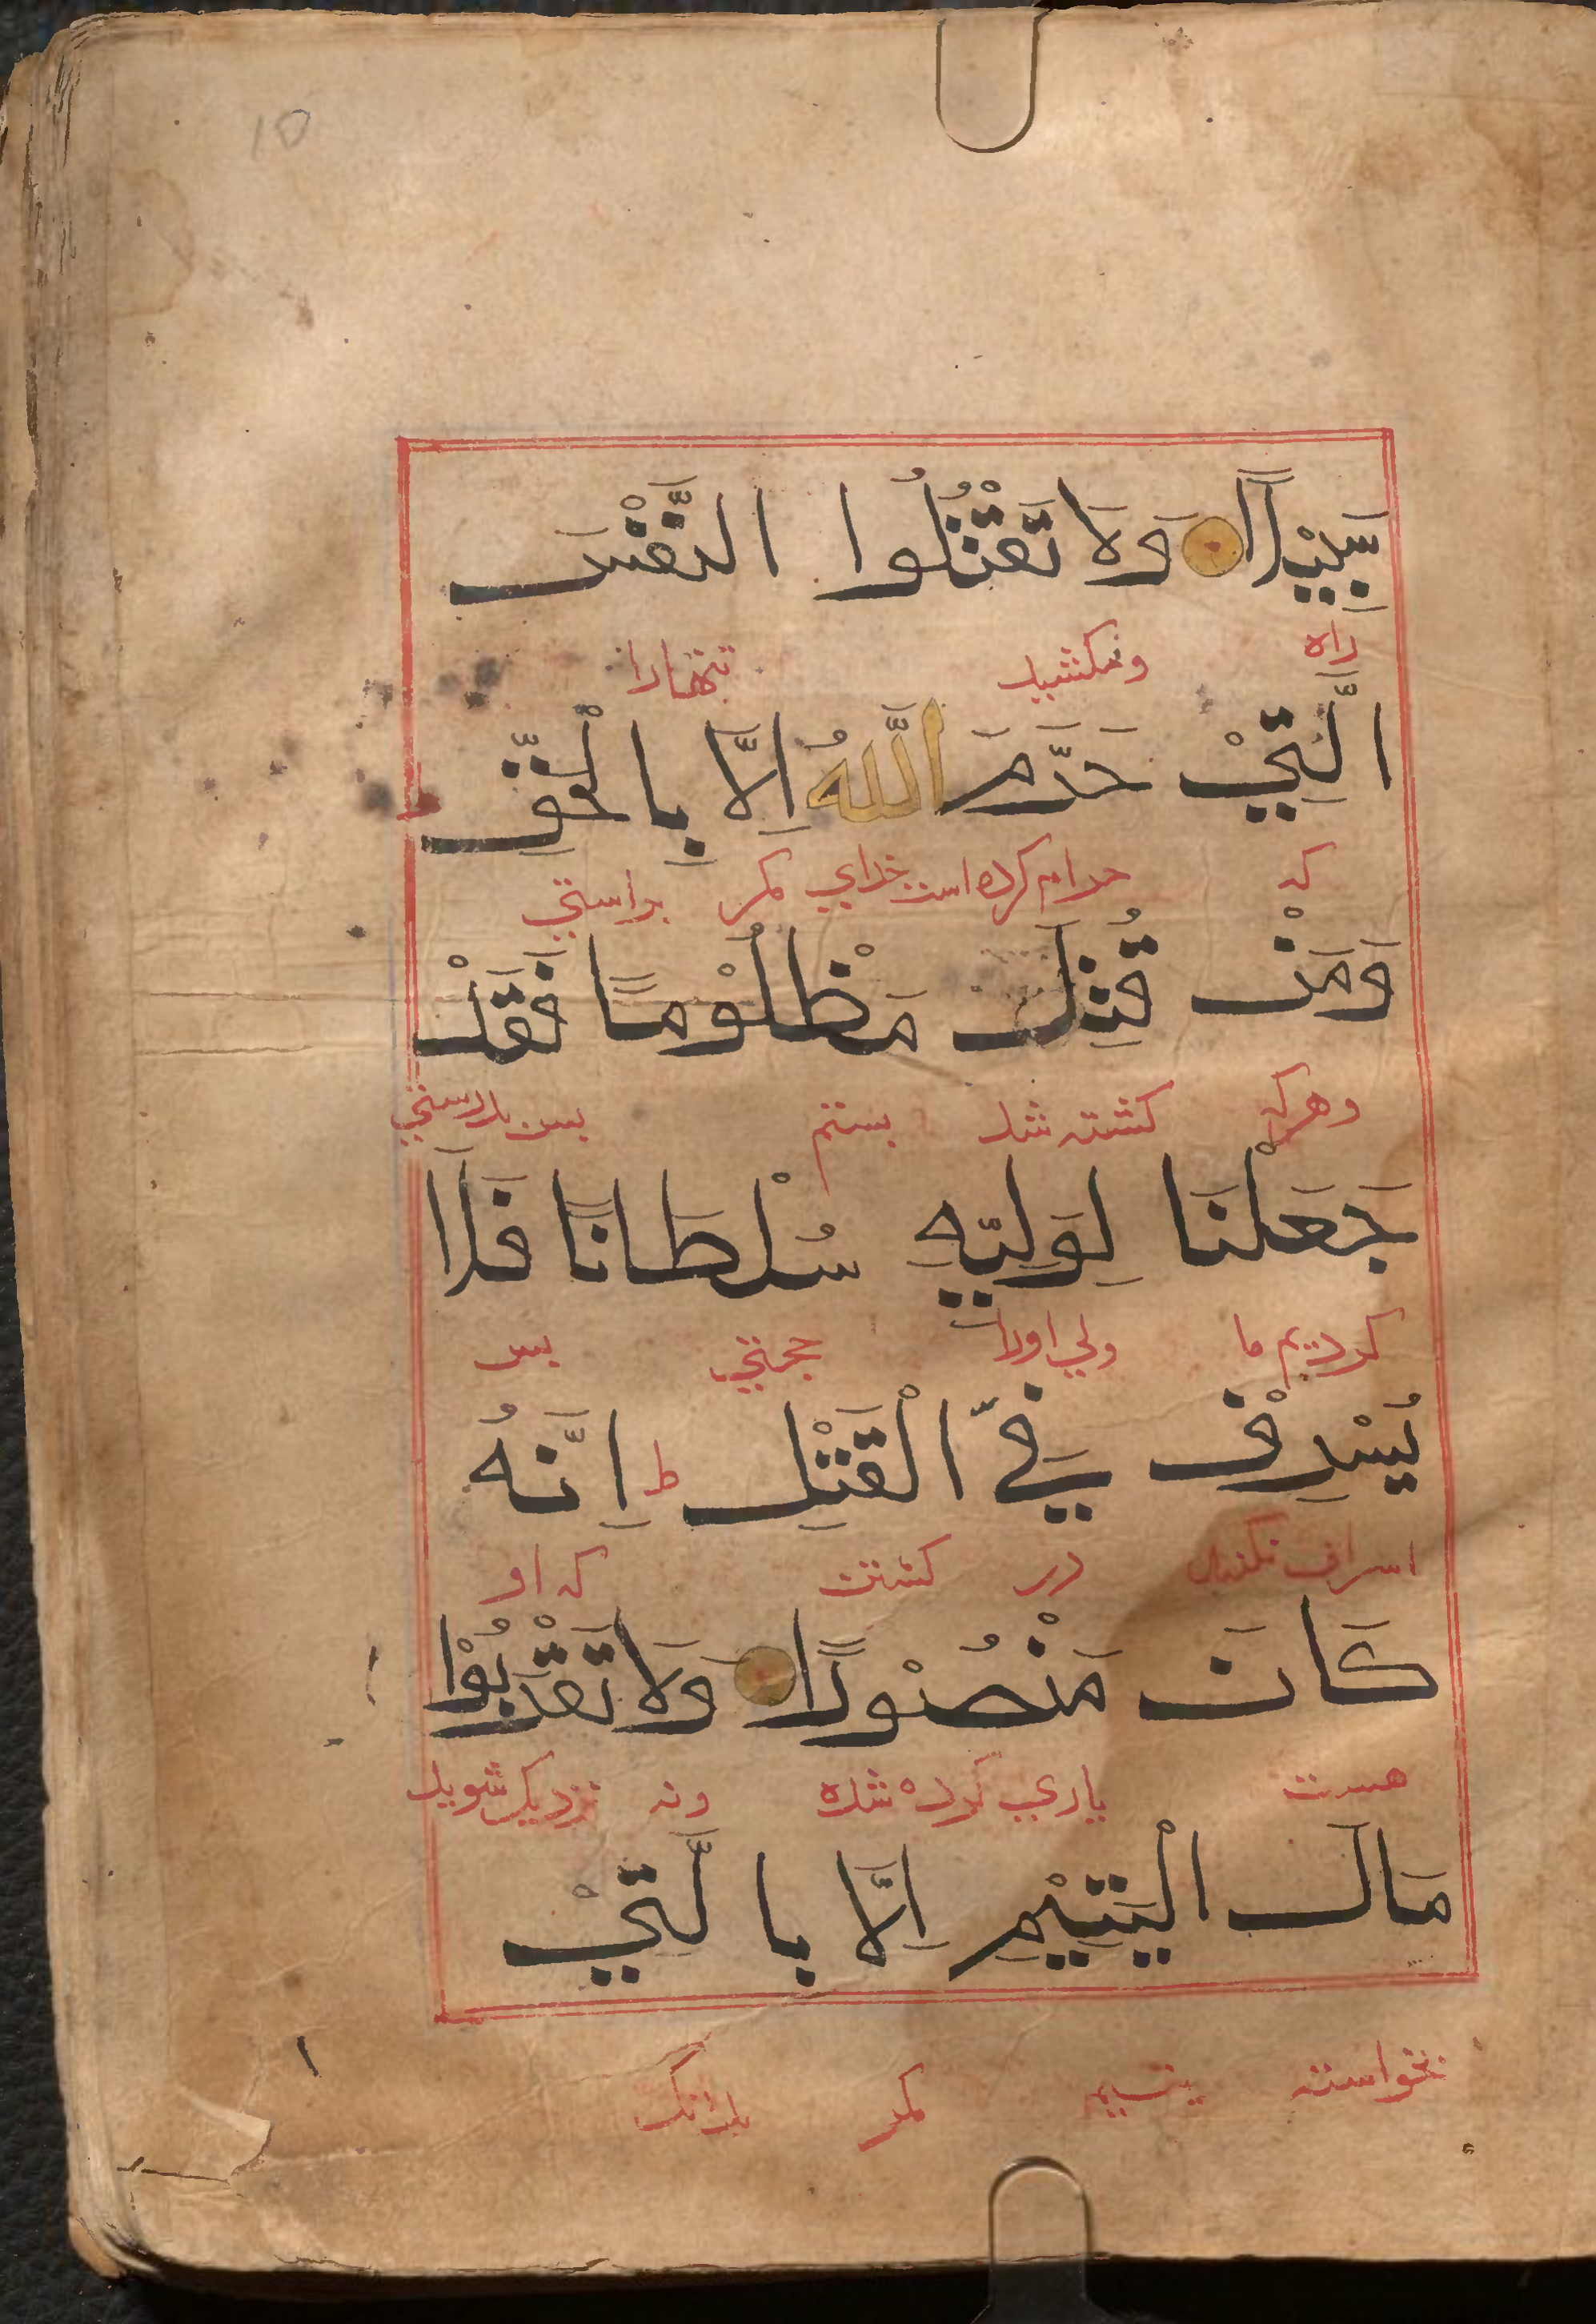 10
سَبِيْلًا وَلَا تَقْتُلُوا النَّفْسَ
راه ومکشید تنهارا
الَّتِيْ حَرَّمَ اللَّهُ اِلَّا بِالْحَقِّ
که حرام کرده است خدای مکر براستی
وَمَنْ قُتِلَ مَظْلُوْمًا فَقَدْ
وهرکه کشته شد بستم بس بدرستی
جَعَلْنَا لِوَلِيِّهِ سُلْطَانًا فَلَا
کردیم ما ولی اورا حجتی بس
يُسْرِفْ فِيّ الْقَتْلِ ط اِنَّهُ
اسراف نکند در کشتن که او
كَانَ مَنْصُوْرًا وَلَا تَقْرَبُوْا
هست یاری کرده شده ونه نزدیک شوید
مَالَ الْيَتِيْمِ اِلَّا بِالَّتِيْ
بخواسته یتیم مکر بدانک